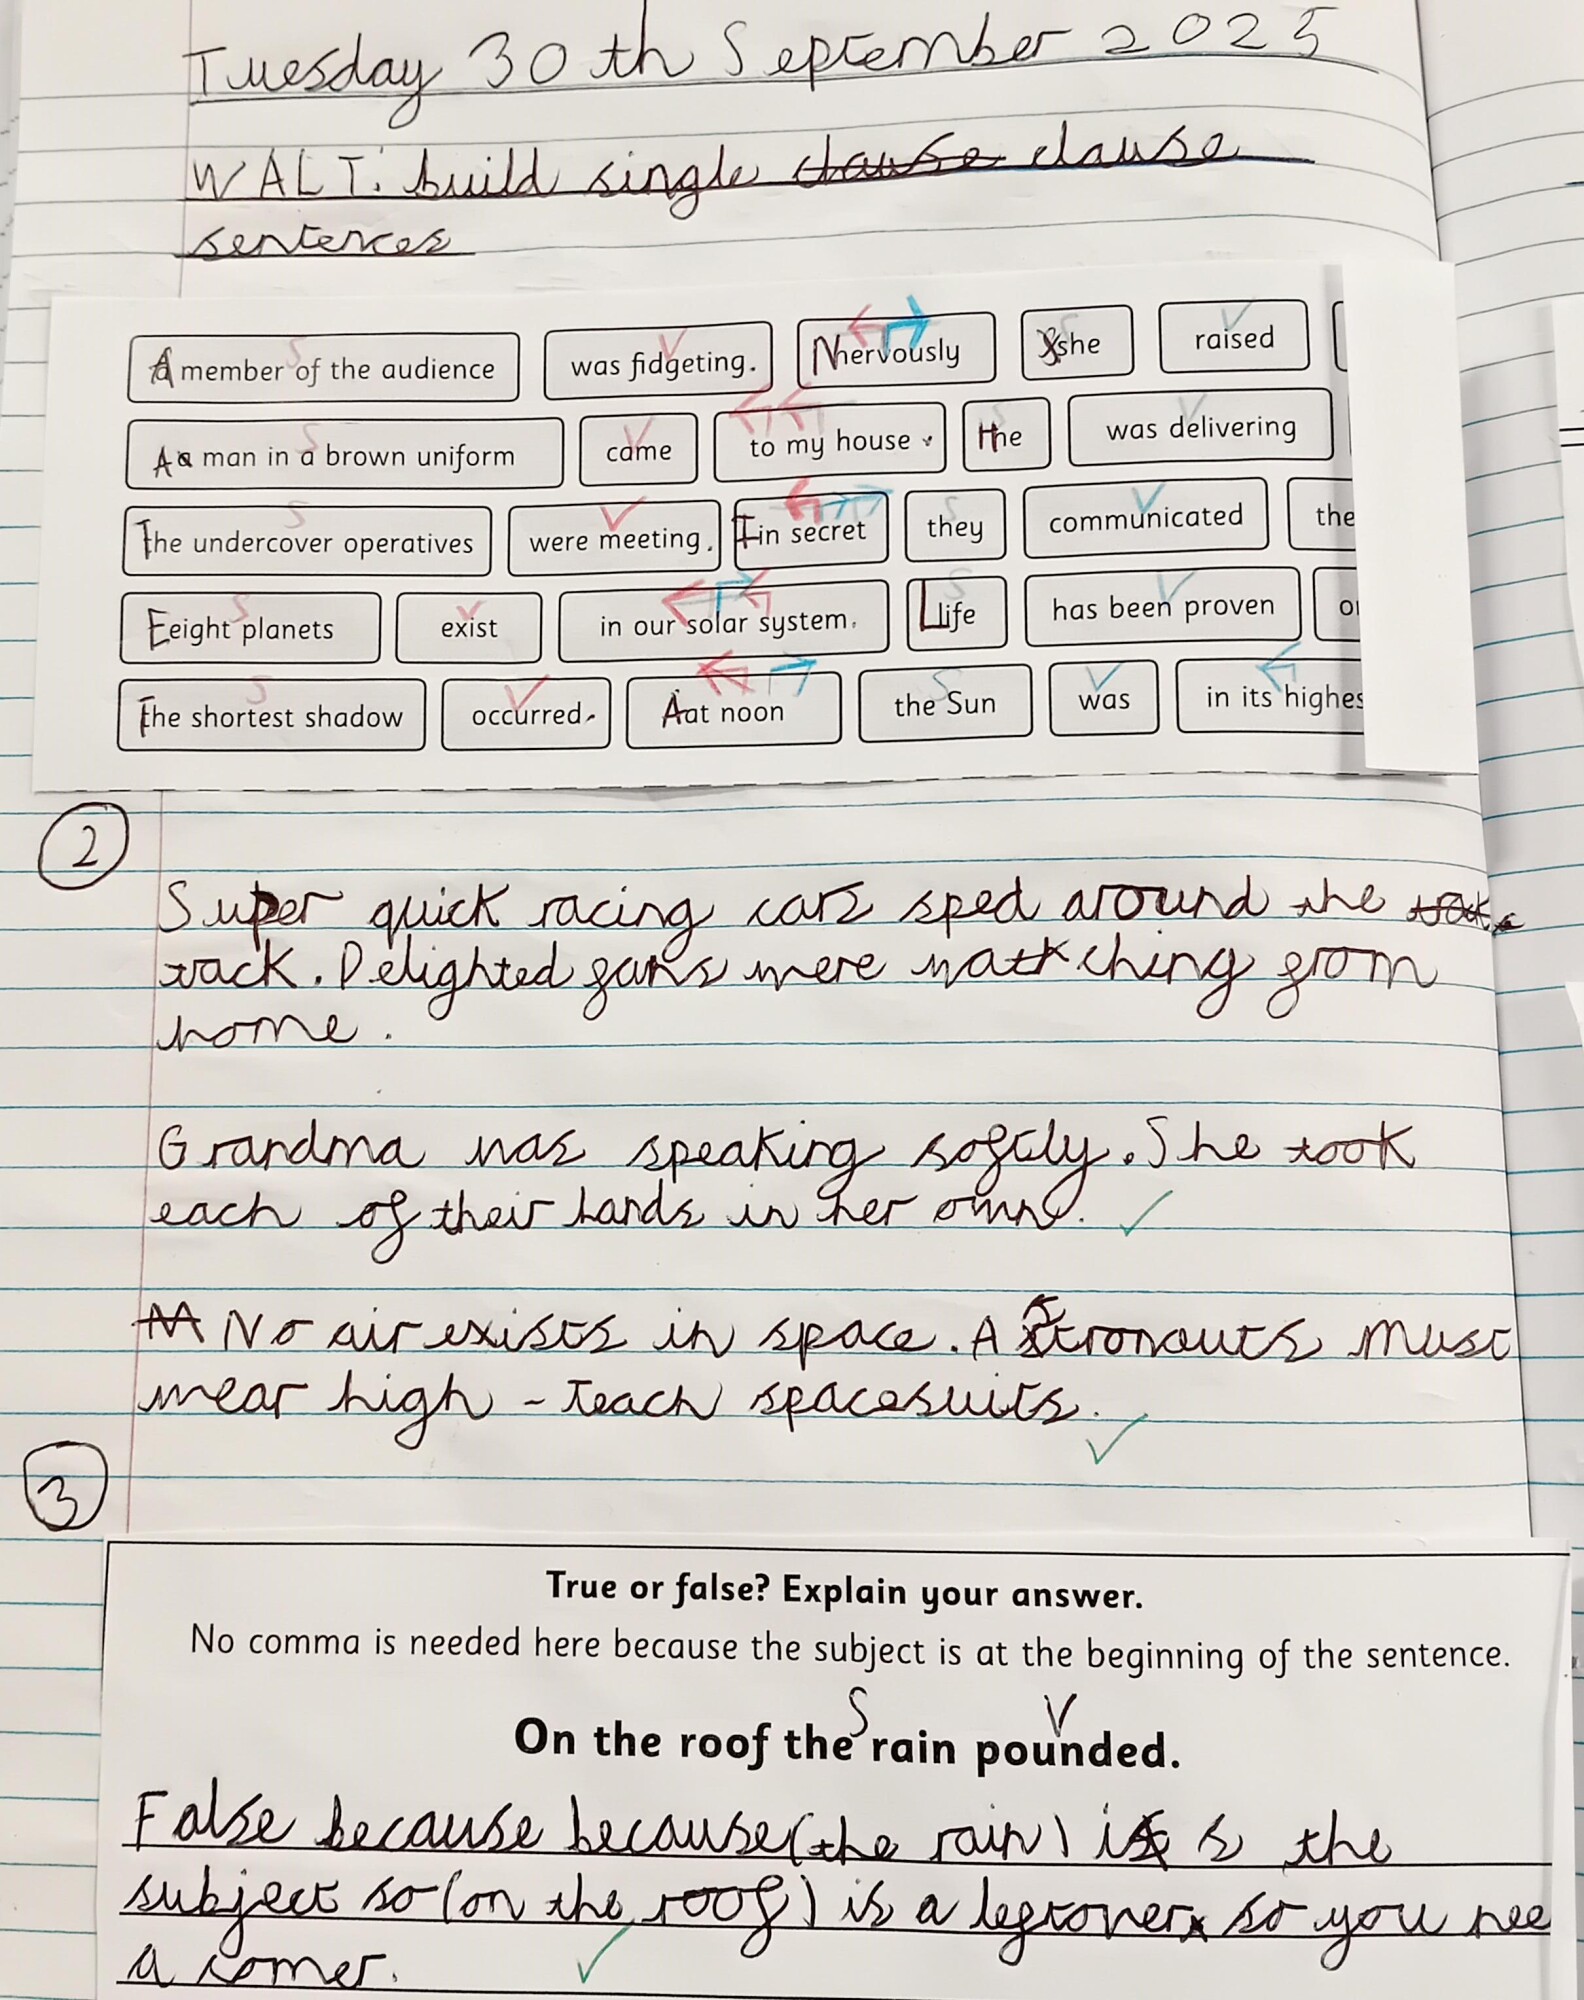 Tuesday 30th September 2025
WALT: build single clause clause
sentences
A a member of the audience was fidgeting. N nervously she raised
A a man in a brown uniform came to my house. H he was delivering
T the undercover operatives were meeting. I in secret they communicated the
E eight planets exist in our solar system. L life has been proven
T the shortest shadow occurred. A at noon the Sun was in its highes
2
Super quick racing cars sped around the
track. Delighted fans were watkching from
home.
Grandma was speaking softly. She took
each of their hands in her own.
No air exists in space. Astronauts must
wear high-teach spacesuits.
3
True or false? Explain your answer.
No comma is needed here because the subject is at the beginning of the sentence.
S V
On the roof the rain pounded.
False because because (the rain) is s the
subject so (on the roof) is a leftover so you nee
a comer.